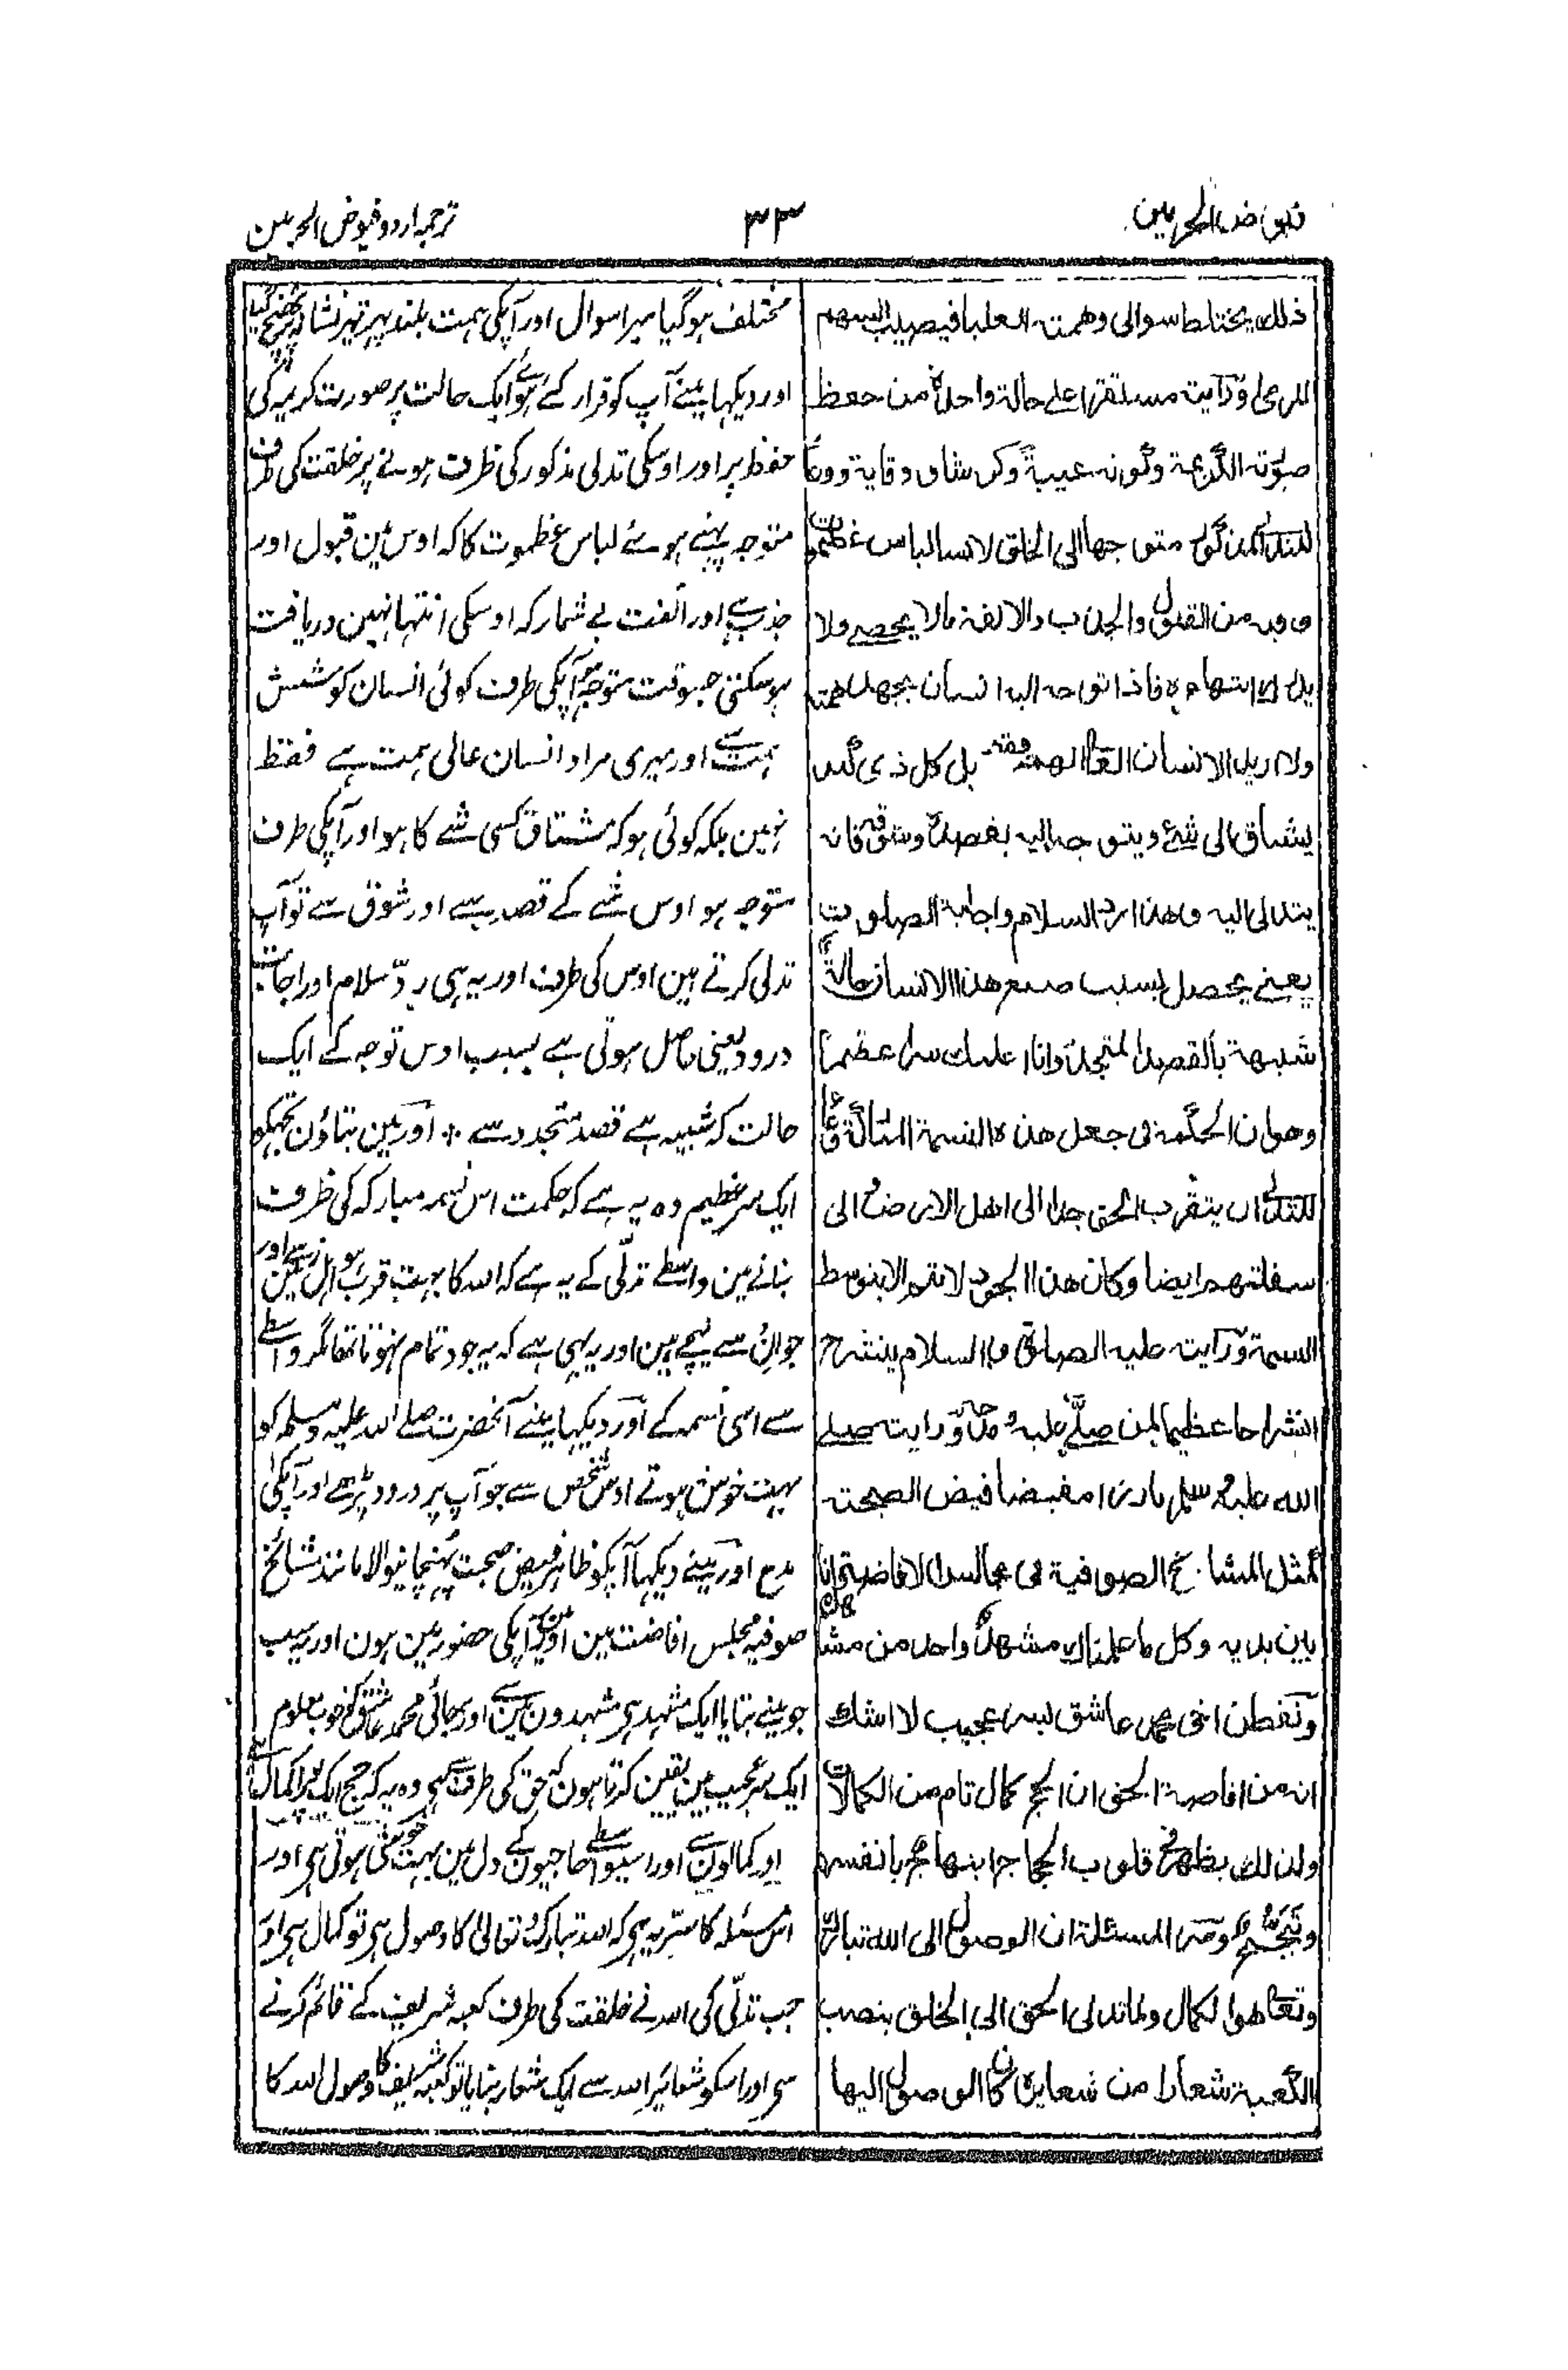 فیوض الحرمین
۳۳
ترجمہ اردو فیوض الحرمین
ذلك يختلط سوالی وهمته العليا فيصيب السهم
المرمی ورأيته مستقرا علی حالة واحدة من حفظ
صورته الكريمة وكونه عيبة وكرشا ووقاية ووعاء
للتدلی متوجها الی الخلق لابسا لباس عظموت
وفيه من القبول والجذب والالفة مالا يحصی ولا
يدرك انتهاءه فاذا توجه اليه انسان بجهد همته
ولا اريد الانسان العالی الهمة فقط بل كل ذی كبد
يشتاق الی شئ ويتوجه اليه بقصده وشوقه فانه
يتدلی اليه وهذا رد السلام واجابة الصلوة
يعنی يحصل بسبب صنع هذا الانسان حالة
شبيهة بالقصد المتجدد وانا اعلمك سرا عظيما
وهو ان الحكمة فی جعل هذه النسمة المباركة وعاء
للتدلی ان يتقرب الحق جدا الی اهل الارض الی
سفلتهم ايضا وكان هذا الجود لا يتم الا بتوسط
النسمة ورأيته عليه الصلوة والسلام ينشرح
انشراحا عظيما لمن صلی عليه ومدحه ورأيت صلی
الله عليه وسلم بارزا مفيضا فيض الصحبة
كمثل المشائخ الصوفية فی مجالس الافاضة وانا
بين يديه وكل ما علمناك مشهد واحد من مشاهده
وتفطن اخی محمد عاشق بسر عجيب لا اشك
انه من افاضة الحق ان الحج كمال تام من الكمالات
ولذلك يظهر فی قلوب الحجاج ابتهاج بانفسهم
وتبجح وسر المسئلة ان الوصول الی الله تبارك
وتعالی هو الكمال ولما تدلی الحق الی الخلق بنصب
الكعبة شعارا من شعايره كان الوصول اليها
مختلف ہوگیا میرا سوال اور آپکی ہمت بلند پھر تیر نشانہ پر پہنچ گیا
اور دیکھا مینے آپ کو قرار کئے ہوئے ایک حالت پر صورت کریمہ کی
حفظ پر اور اوسکی تدلی مذکور کی ظرف ہونے پر خلقت کی طرف
متوجہ پہنے ہوئے لباس عظموت کا کہ اوس مین قبول اور
جذب ہے اور الفت بے شمار کہ اوسکی انتہا نہین دریافت
ہو سکتی جسوقت متوجہ ہو آپکی طرف کوئی انسان کوشش
ہمت سے اور میری مراد انسان عالی ہمت ہے فقط
نہین بلکہ کوئی ہو کہ مشتاق کسی شے کا ہو اور آپکی طرف
متوجہ ہو اوس شے کے قصد سے اور شوق سے تو آپ
تدلی کرتے ہین اوس کی طرف اور یہ ہی ردّ سلام اور اجابت
درود یعنی حاصل ہوتی ہے بسبب اوس توجہ کے ایک
حالت کہ شبیہ ہے قصد متجدد سے ❊ اور مین بتاؤن تجھکو
ایک سر عظیم وہ یہ ہے کہ حکمت اس نسمہ مبارکہ کی ظرف
بنانے مین واسطے تدلّی کے یہ ہے کہ اللہ کا بہت قرب ہو اہل زمین سے اور
جو ان سے نیچے ہین اور یہ بھی ہے کہ یہ جود تمام نہوتا تھا مگر واسطے
سے اسی نسمہ کے اور دیکھا مینے آنحضرت صلے اللہ علیہ وسلم کو
بہت خوش ہوتے اوس شخص سے جو آپ پر درود پڑھے اور آپکی
مدح اور مینے دیکھا آپکو ظاہر فیض صحبت پہنچانیوالا مانند مشائخ
صوفیہ مجلس افاضت مین اور مین آپکی حضور مین ہون اور یہ سب
جو مینے بتایا ایک مشہد ہی مشہدون مین سے اور بھائی محمد عاشق کو خوب معلوم
ایک سر عجیب مین یقین کرتا ہون کہ حق کی طرف سے ہی وہ یہ کہ حج ایک پورا کمال ہے
اور کمالون سے اور اسیواسطے حاجیون کے دل مین بہت خوشی ہوتی ہی اور
اس مسئلہ کا ستر یہ ہی کہ اللہ تبارک و تعالی کا وصول ہی تو کمال ہی اور
جب تدلّی کی اللہ نے خلقت کی طرف کعبہ شریف کے قائم کرنے
سی اور اسکو شعائر اللہ سے ایک شعار بنایا تو کعبہ شریف کا وصول اللہ کا